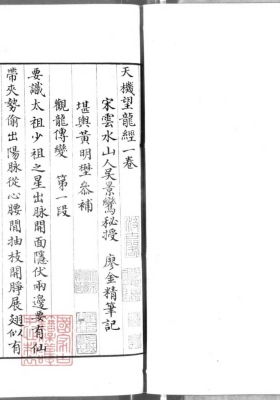 天機望龍經一卷
宋雲水山人吳景鸞秘授 廖金精筆記
堪輿黃明㙫叅補
觀龍傳變 第一段
要識太祖少祖之星出脉開面隱伏兩邊要有仙
帶夾勢偷出陽脉從心腰間抽枝開睜展翅似有